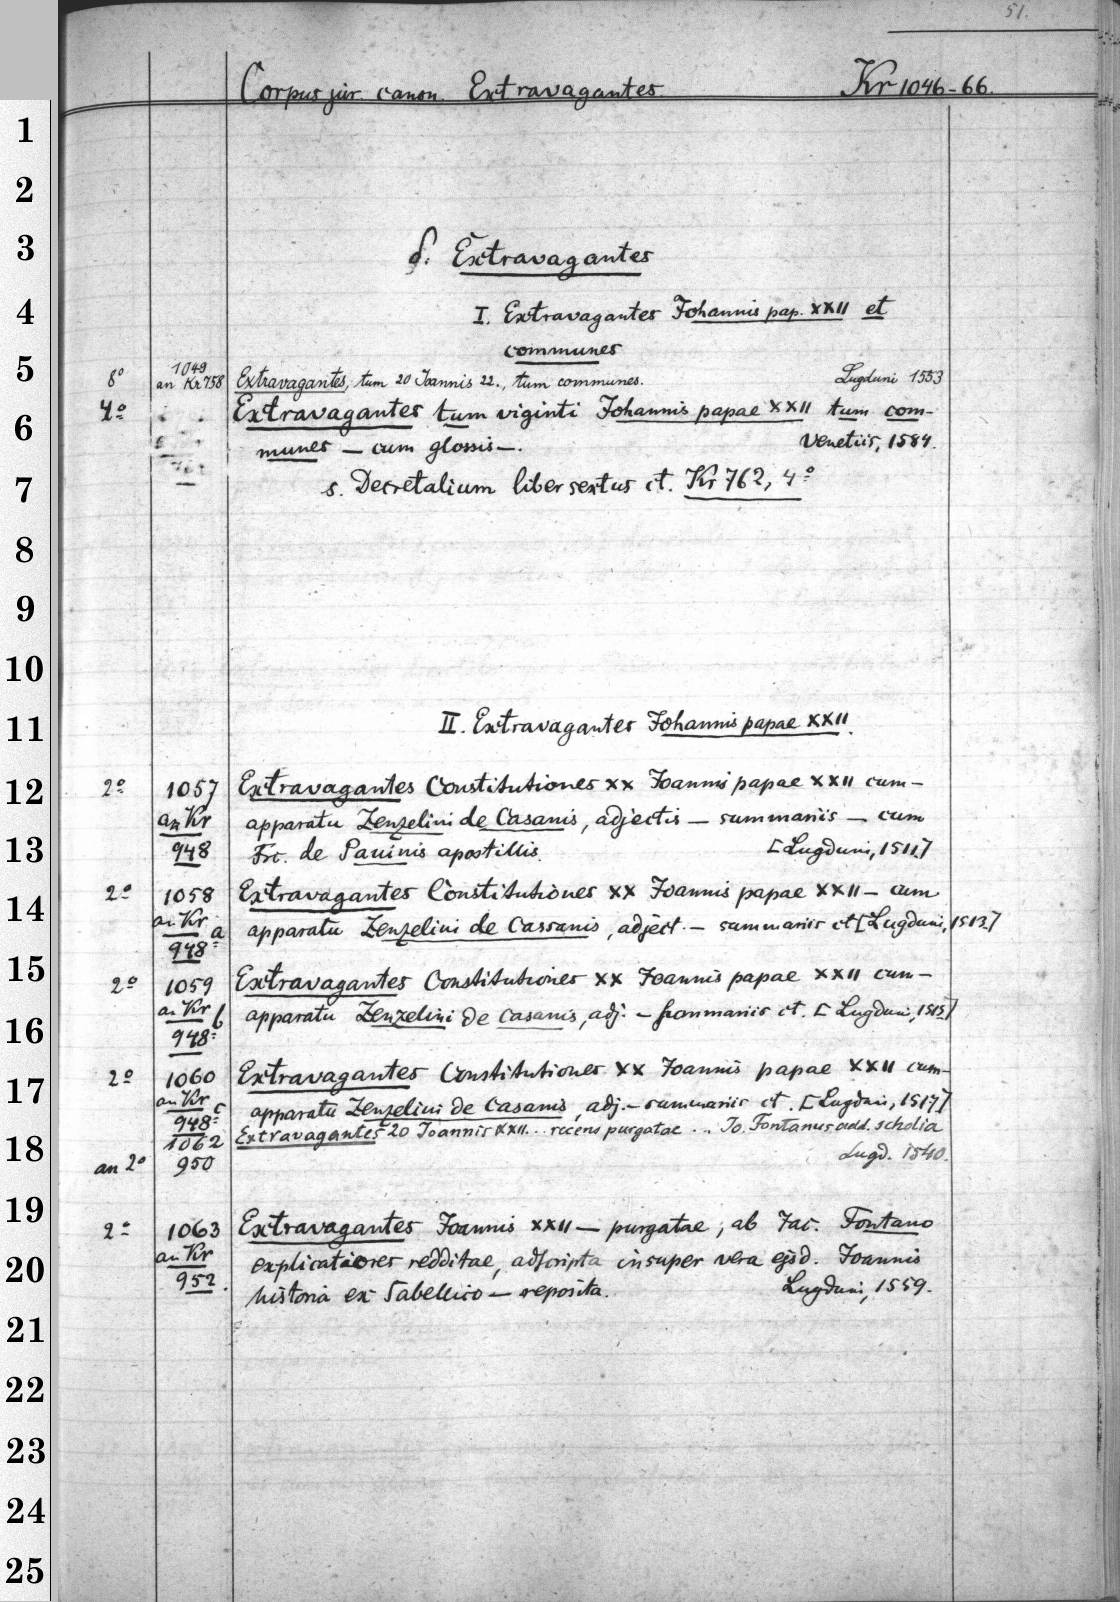 51.
Corpus jur. canon. Extravagantes Kr 1046-66.
1
2
3 δ. Extravagantes
4 I. Extravagantes Johannis pap. XXII et
communes
5 8° 1049 an Kr 758 Extravagantes, tum 20 Joannis 22., tum communes. Lugduni 1553
4° Extravagantes tum viginti Johannis papae XXII tum com-
6 munes — cum glossis —. Venetiis, 1584.
7 s. Decretalium liber sextus ct. Kr 762, 4°
8
9
10
11 II. Extravagantes Johannis papae XXII.
12 2° 1057 Extravagantes Constitutiones XX Joannis papae XXII cum —
an Kr apparatu Zenzelini de Casanis, adjectis — summariis — cum
13 948 Frc. de Pauinis apostillis. [Lugduni, 1511]
14 2° 1058 Extravagantes Constitutiones XX Joannis papae XXII — cum
an Kr 948 a apparatu Zenzelini de Cassanis, adject. — summariis ct [Lugduni, 1513.]
15 2° 1059 Extravagantes Constitutiones XX Joannis papae XXII cum —
16 an Kr 948 b apparatu Zenzelini de Casanis, adj. — summariis ct. [Lugduni, 1515]
17 2° 1060 Extravagantes Constitutiones XX Joannis papae XXII cum —
an Kr 948 c apparatu Zenzelini de Casanis, adj. — summariis ct. [Lugduni, 1517]
1062 Extravagantes 20 Joannis XXII... recens purgatae .. Jo. Fontanus add. scholia
18 an 2° 950 Lugd. 1540.
19 2° 1063 Extravagantes Joannis XXII — purgatae, ab Jac. Fontano
20 an Kr explicatiores redditae, adscripta insuper vera ejsd. Joannis
952. historia ex Sabellico — reposita. Lugduni, 1559.
21
22
23
24
25